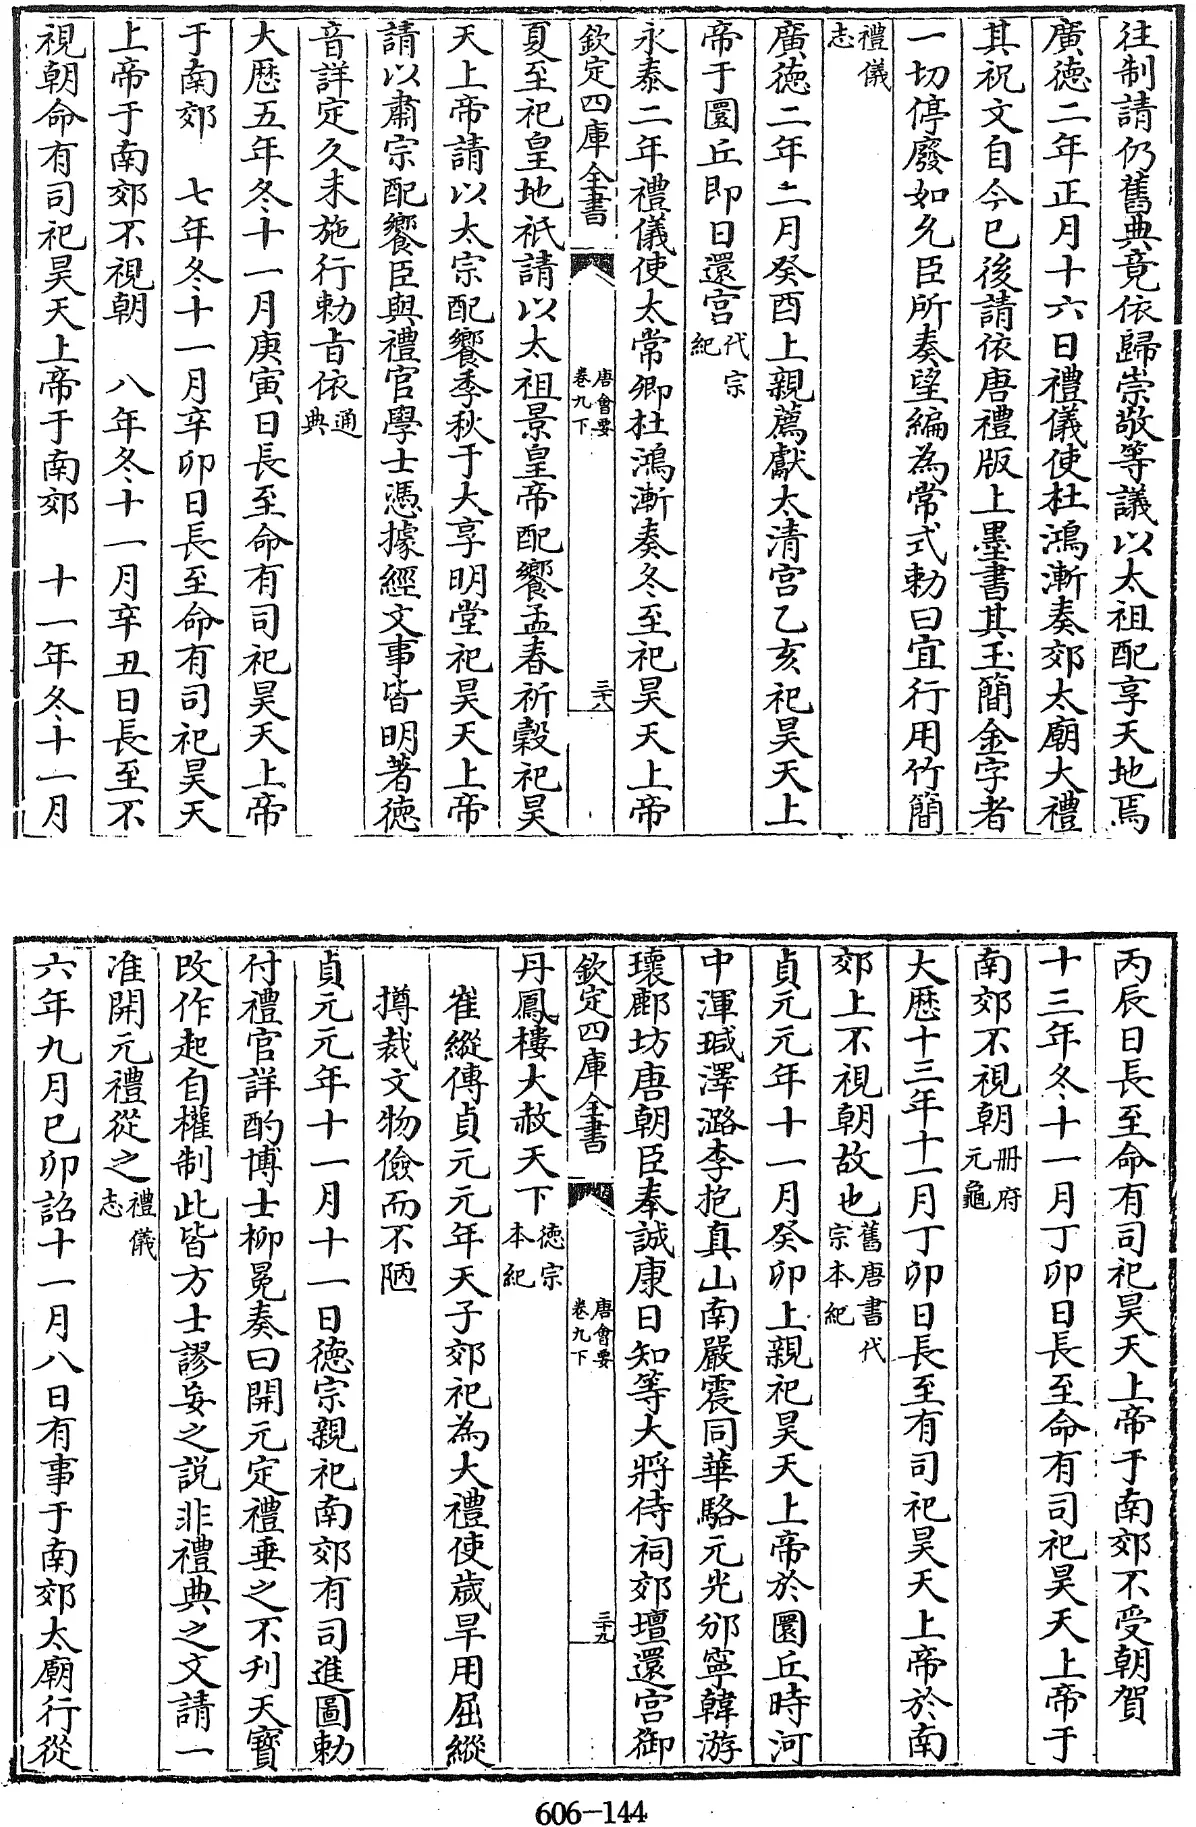 往制請仍舊典竟依歸崇敬等議以太祖配享天地焉
廣徳二年正月十六日禮儀使杜鴻漸奏郊太廟大禮
其祝文自今已後請依唐禮版上墨書其玉簡金字者
一切停廢如允臣所奏望編為常式勅曰宜行用竹簡
禮儀
志
廣徳二年二月癸酉上親薦獻太清宮乙亥祀昊天上
帝于圜丘即日還宮代宗
紀
永泰二年禮儀使太常卿杜鴻漸奏冬至祀昊天上帝
欽定四庫全書
唐會要
卷九下
三十八
夏至祀皇地祇請以太祖景皇帝配饗孟春祈穀祀昊
天上帝請以太宗配饗季秋于大享明堂祀昊天上帝
請以肅宗配饗臣與禮官學士憑據經文事皆明著徳
音詳定久未施行勅旨依通
典
大厯五年冬十一月庚寅日長至命有司祀昊天上帝
于南郊　七年冬十一月辛卯日長至命有司祀昊天
上帝于南郊不視朝　八年冬十一月辛丑日長至不
視朝命有司祀昊天上帝于南郊　十一年冬十一月
丙辰日長至命有司祀昊天上帝于南郊不受朝賀
十三年冬十一月丁卯日長至命有司祀昊天上帝于
南郊不視朝冊府
元龜
大厯十三年十一月丁卯日長至有司祀昊天上帝於南
郊上不視朝故也舊唐書代
宗本紀
貞元元年十一月癸卯上親祀昊天上帝於圜丘時河
中渾瑊澤潞李抱真山南嚴震同華駱元光邠寧韓游
瓌鄜坊唐朝臣奉誠康日知等大將侍祠郊壇還宮御
欽定四庫全書
唐會要
卷九下
三十九
丹鳳樓大赦天下徳宗
本紀
崔縱傳貞元元年天子郊祀為大禮使歲旱用屈縱
撙裁文物儉而不陋
貞元元年十一月十一日徳宗親祀南郊有司進圖勅
付禮官詳酌博士柳冕奏曰開元定禮垂之不刋天寳
改作起自權制此皆方士謬妄之説非禮典之文請一
准開元禮從之禮儀
志
六年九月已卯詔十一月八日有事于南郊太廟行從
606-144